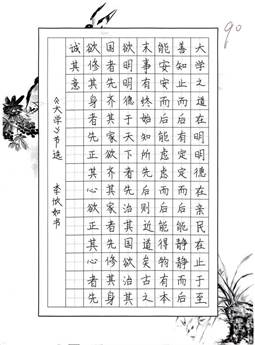 90
大学之道在明明德在亲民在止于至
善知止而后有定定而后能静静而后
能安安而后能虑虑而后能得物有本
末事有终始知所先后则近道矣古之
欲明明德于天下者先治其国欲治其
国者先齐其家欲齐其家者先修其身
欲修其身者先正其心欲正其心者先
诚其意
《大学》节选 李如书